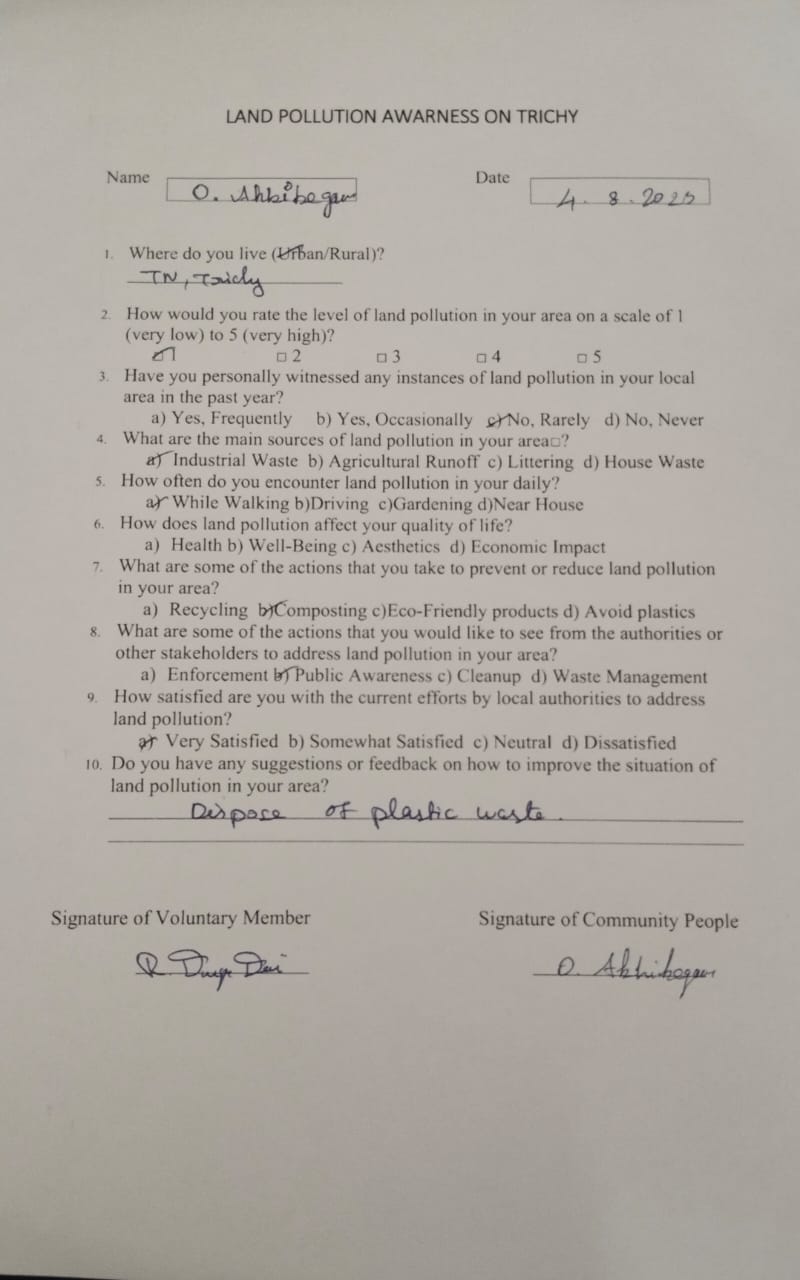 LAND POLLUTION AWARNESS ON TRICHY
Name O. Ahbibegam Date 4. 8. 2025
1. Where do you live (Urban/Rural)?
TN, Trichy
2. How would you rate the level of land pollution in your area on a scale of 1
(very low) to 5 (very high)?
□ 1 □ 2 □ 3 □ 4 □ 5
3. Have you personally witnessed any instances of land pollution in your local
area in the past year?
a) Yes, Frequently b) Yes, Occasionally c) No, Rarely d) No, Never
4. What are the main sources of land pollution in your area□?
a) Industrial Waste b) Agricultural Runoff c) Littering d) House Waste
5. How often do you encounter land pollution in your daily?
a) While Walking b)Driving c)Gardening d)Near House
6. How does land pollution affect your quality of life?
a) Health b) Well-Being c) Aesthetics d) Economic Impact
7. What are some of the actions that you take to prevent or reduce land pollution
in your area?
a) Recycling b)Composting c)Eco-Friendly products d) Avoid plastics
8. What are some of the actions that you would like to see from the authorities or
other stakeholders to address land pollution in your area?
a) Enforcement b) Public Awareness c) Cleanup d) Waste Management
9. How satisfied are you with the current efforts by local authorities to address
land pollution?
a) Very Satisfied b) Somewhat Satisfied c) Neutral d) Dissatisfied
10. Do you have any suggestions or feedback on how to improve the situation of
land pollution in your area?
Dispose of plastic waste.
Signature of Voluntary Member Signature of Community People
O.